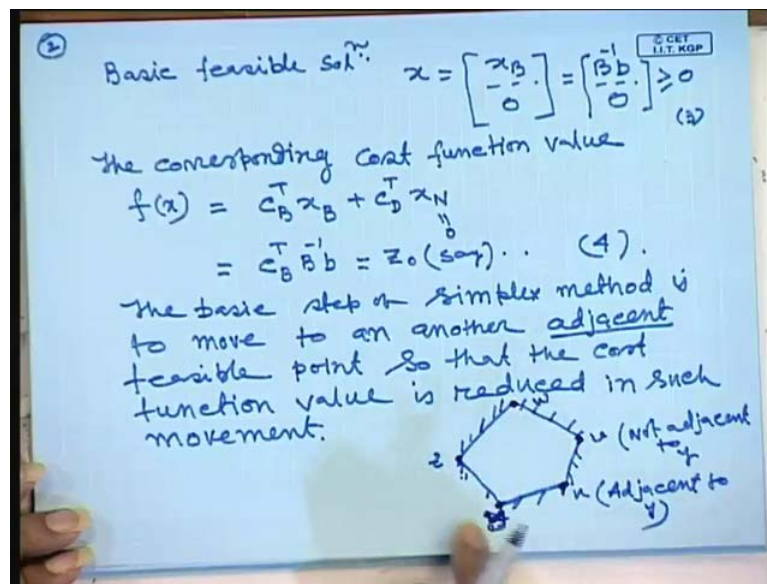 2
© CET
I.I.T. KGP
Basic feasible Solⁿ: x = [x_B / 0] = [B⁻¹b / 0] ≥ 0
(3)
The corresponding cost function value
f(x) = c_B^T x_B + c_D^T x_N
= 0
= c_B^T B⁻¹ b = Z₀ (say) .. (4).
The basic step of simplex method is
to move to an another adjacent
feasible point so that the cost
function value is reduced in such
movement.
w
v (Not adjacent
to y
z
u (Adjacent to
y)